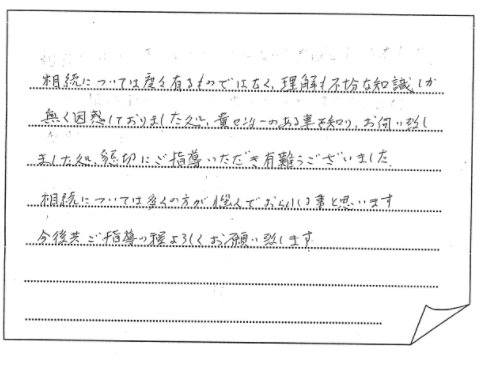 相続については度々有るものではなく、理解も不十分な知識しか
無く困惑しておりました処、貴センターのある事を知り、お伺い致し
ました処、親切にご指導いただき有難うございました
相続については多くの方が悩んでおられる事と思います
今後共ご指導の程よろしくお願い致します